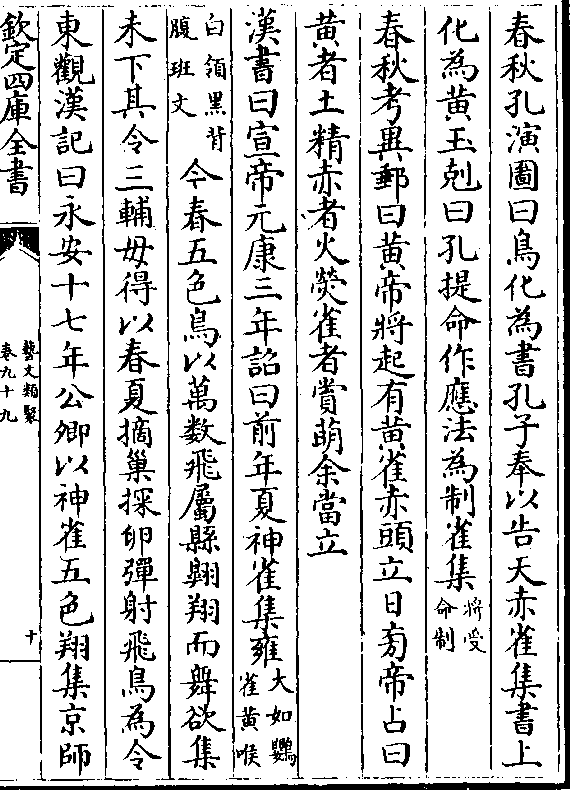 春秋孔演圖曰鳥化為書孔子奉以告天赤雀集書上
化為黄玉刻曰孔提命作應法為制雀集將受命制
春秋考異郵曰黄帝將起有黄雀赤頭立日旁帝占曰
黄者土精赤者火熒雀者賞萌余當立
漢書曰宣帝元康三年詔曰前年夏神雀集雍大如鷃雀黄喉
白領黑背腹班文今春五色鳥以萬数飛屬縣翱翔而舞欲集
未下其令三輔毋得以春夏摘巢探卵彈射飛鳥為令
東觀漢記曰永安十七年公卿以神雀五色翔集京師
欽定四庫全書
藝文類聚
卷九十九
十